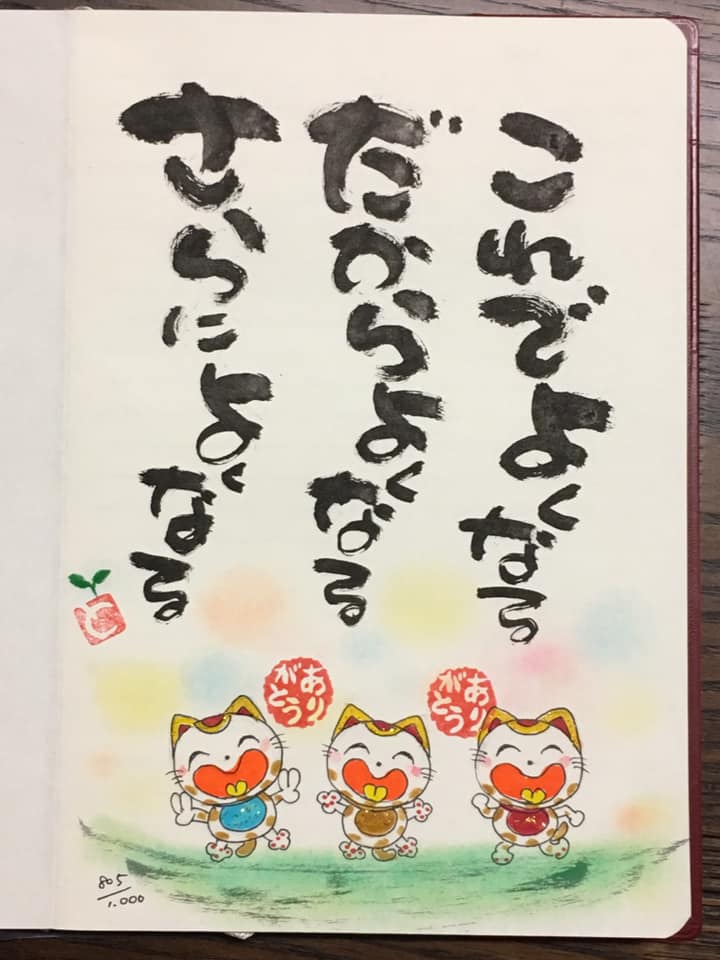 これでよくなる
だからよくなる
さらによくなる
と
ありがとう
ありがとう
805/1.000